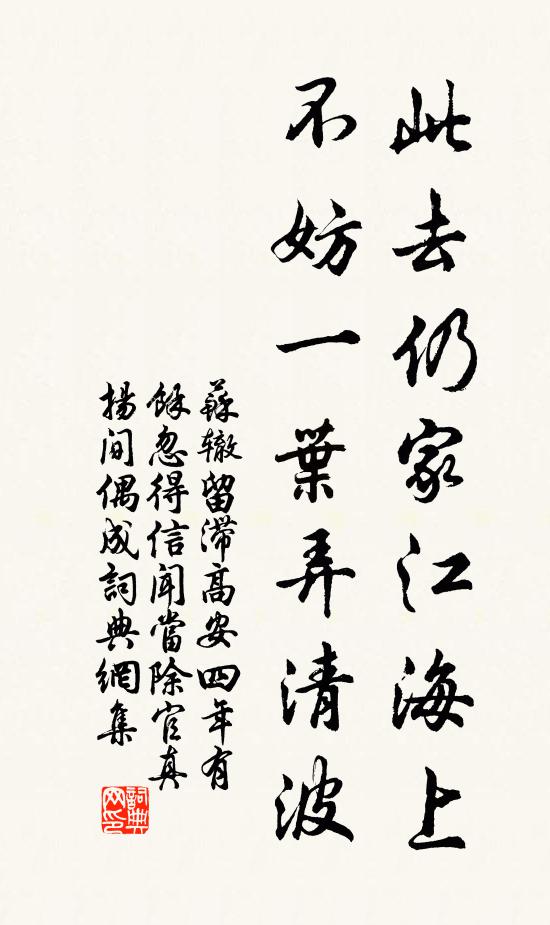 此去仍家江海上
不妨一葉弄清波
蘇轍留滯高安四年有
餘忽得信聞當除官真
揚間偶成詞典網集
詞典网印